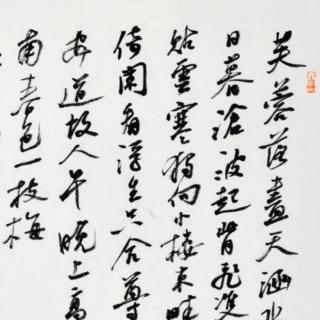 芙蓉落盡天涵水
日暮滄波起背飛雙
貼雲寒獨向小樓東畔
倚闌看浮生只合尊
安道故人早晚上高
南春色一枝梅